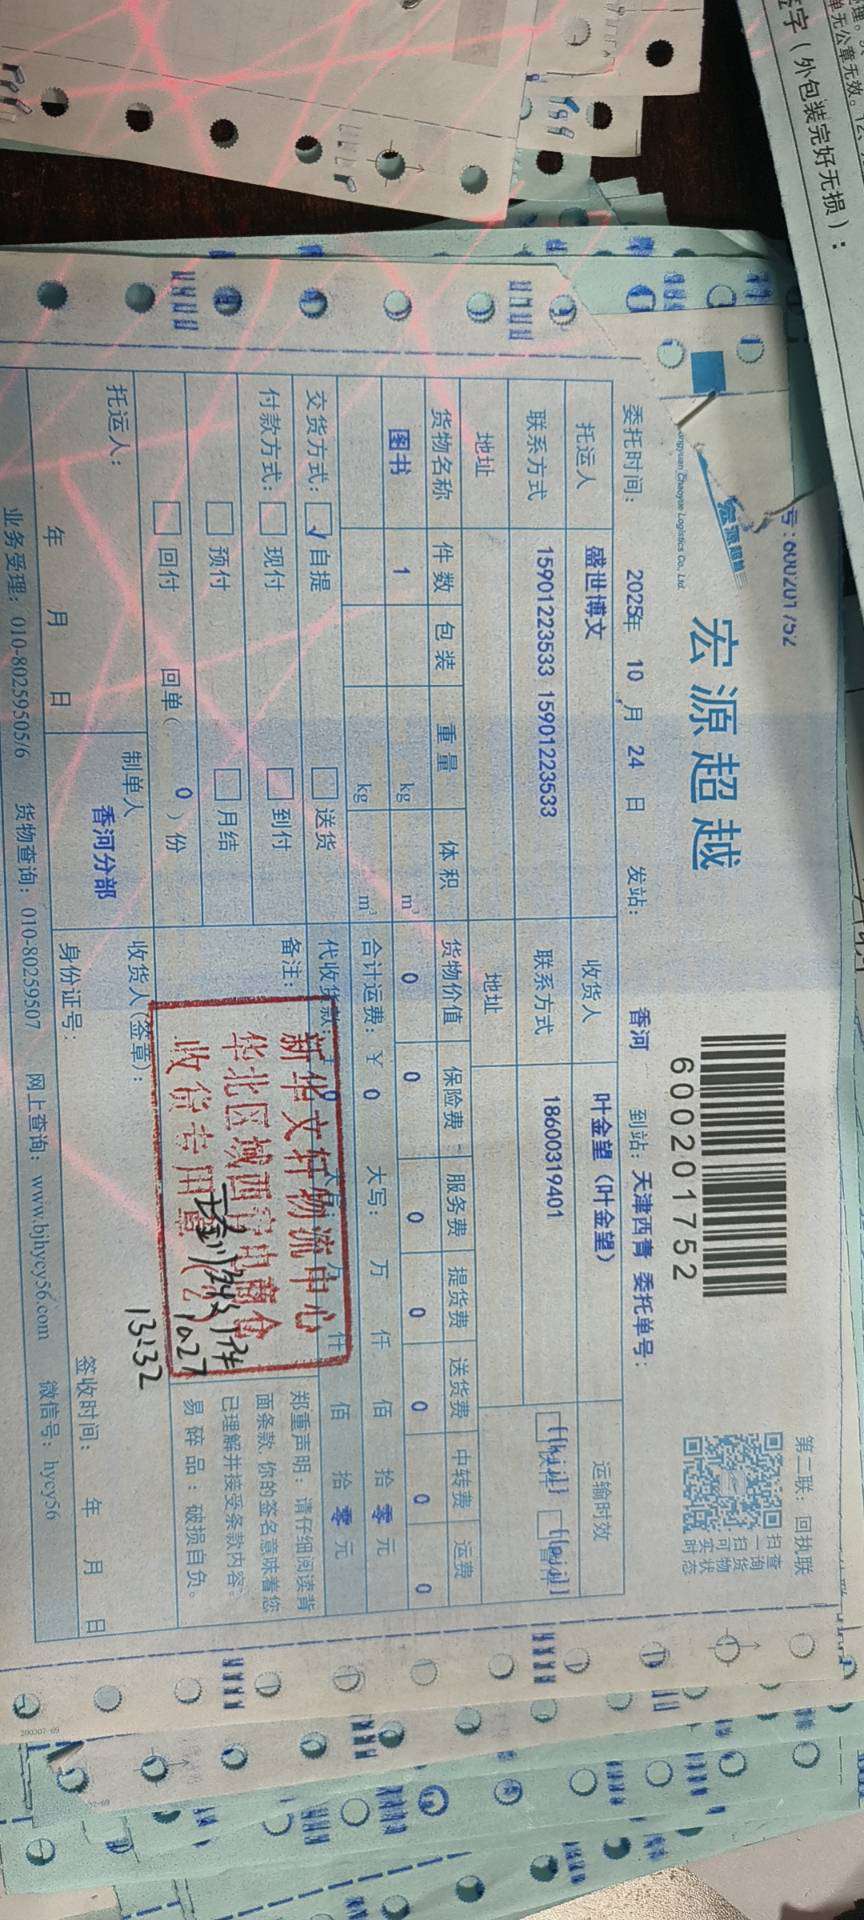 字（外包装完好无损）：
单无公章无效。
号:600201752
宏源超越
ongyuan Chaoyue Logistics Co., Ltd
宏源超越
600201752
第二联：回执联
扫查
一询
扫货
可物
实状
时态
委托时间： 2025年 10 月 24 日 发站： 香河 到站：天津西青 委托单号：
托运人 盛世博文 收货人 叶金望（叶金望） 运输时效
联系方式 15901223533 15901223533 联系方式 18600319401
地址 地址
货物名称 件数 包装 重量 体积 货物价值 保险费 服务费 提货费 送货费 中转费 运费
图书 1 kg m³ 0 0 0 0 0 0 0
kg m³ 合计运费：￥ 0 大写： 万 仟 佰 拾 零 元
交货方式： 自提 送货 代收货款： 0 万 仟 佰 拾 零 元
付款方式： 现付 到付 备注：
预付 月结
回付 回单（ 0 ）份
郑重声明：请仔细阅读背
面条款，你的签名意味着您
已理解并接受条款内容。
易碎品：破损自负。
新华文轩物流中心
收货专用章
10.27
13:32
托运人： 制单人 收货人(签章)：
香河分部
年 月 日 身份证号： 签收时间： 年 月 日
业务受理：010-80259505/6 货物查询：010-80259507 网上查询：www.bjhycy56.com 微信号：hycy56